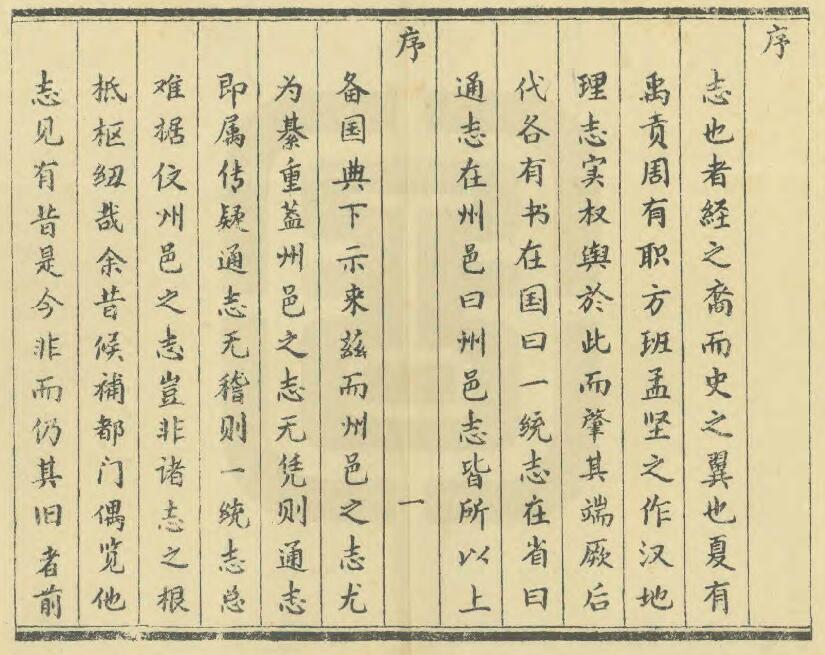 序
志也者経之裔而史之翼也夏有
禹贡周有职方班孟坚之作汉地
理志实权舆於此而肇其端厥后
代各有书在国曰一统志在省曰
通志在州邑曰州邑志皆所以上
序
一
备国典下示来兹而州邑之志尤
为綦重盖州邑之志无凭则通志
即属传疑通志无稽则一统志总
难据仗州邑之志豈非诸志之根
柢枢纽哉余昔候補都门偶览他
志见有昔是今非而仍其旧者前